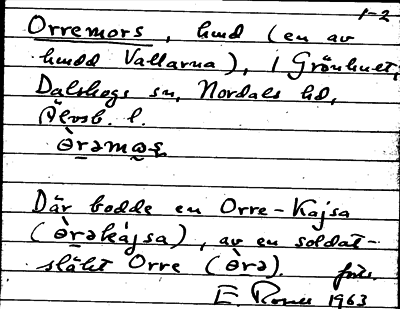 1-2
Orremors, hmd (en av
hmdd Vallarna), i Grönhult,
Dalskogs sn, Nordals hd,
Älvsb. l.
Där bodde en Orre-Kajsa
(ὲrəkájsa), av en soldat-
släkt Orre (ὲrə). forts.
E. 1963